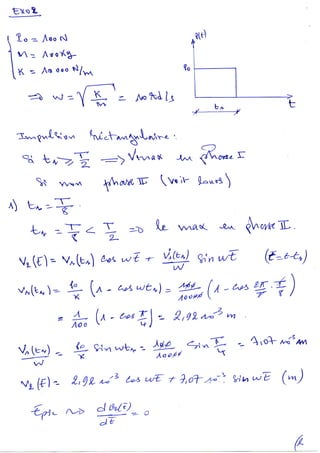 Exo2
P₀ = 100 N
M = 100 Kg
K = 10 000 N/m
P(t)
P₀
t₁
t
=> w = √(K/m) = 10 rd/s
Impulsion réctangulaire :
Si t₁ ≥ T/2 => Vmax en phase I
Si non phase II (voir cours)
1) t₁ = T/8
t₁ = T/8 < T/2 => le max en phase II.
V₂(t̄) = V₁(t₁) cos wt̄ + V̇₁(t₁)/w Sin wt̄ (t̄ = t-t₁)
V₁(t₁) = P₀/K (1 - cos wt₁) = 100/10000 (1 - cos 2π/T . T/8)
= 1/100 (1 - cos π/4) = 2,92 10⁻³ m.
V̇₁(t₁)/w = P₀/K Sin wt₁ = 100/10000 Sin π/4 = 7,07 10⁻³ m
V₂(t̄) = 2,92 10⁻³ cos wt̄ + 7,07 10⁻³ sin wt̄ (m)
dV₂(t̄)/dt̄ = 0